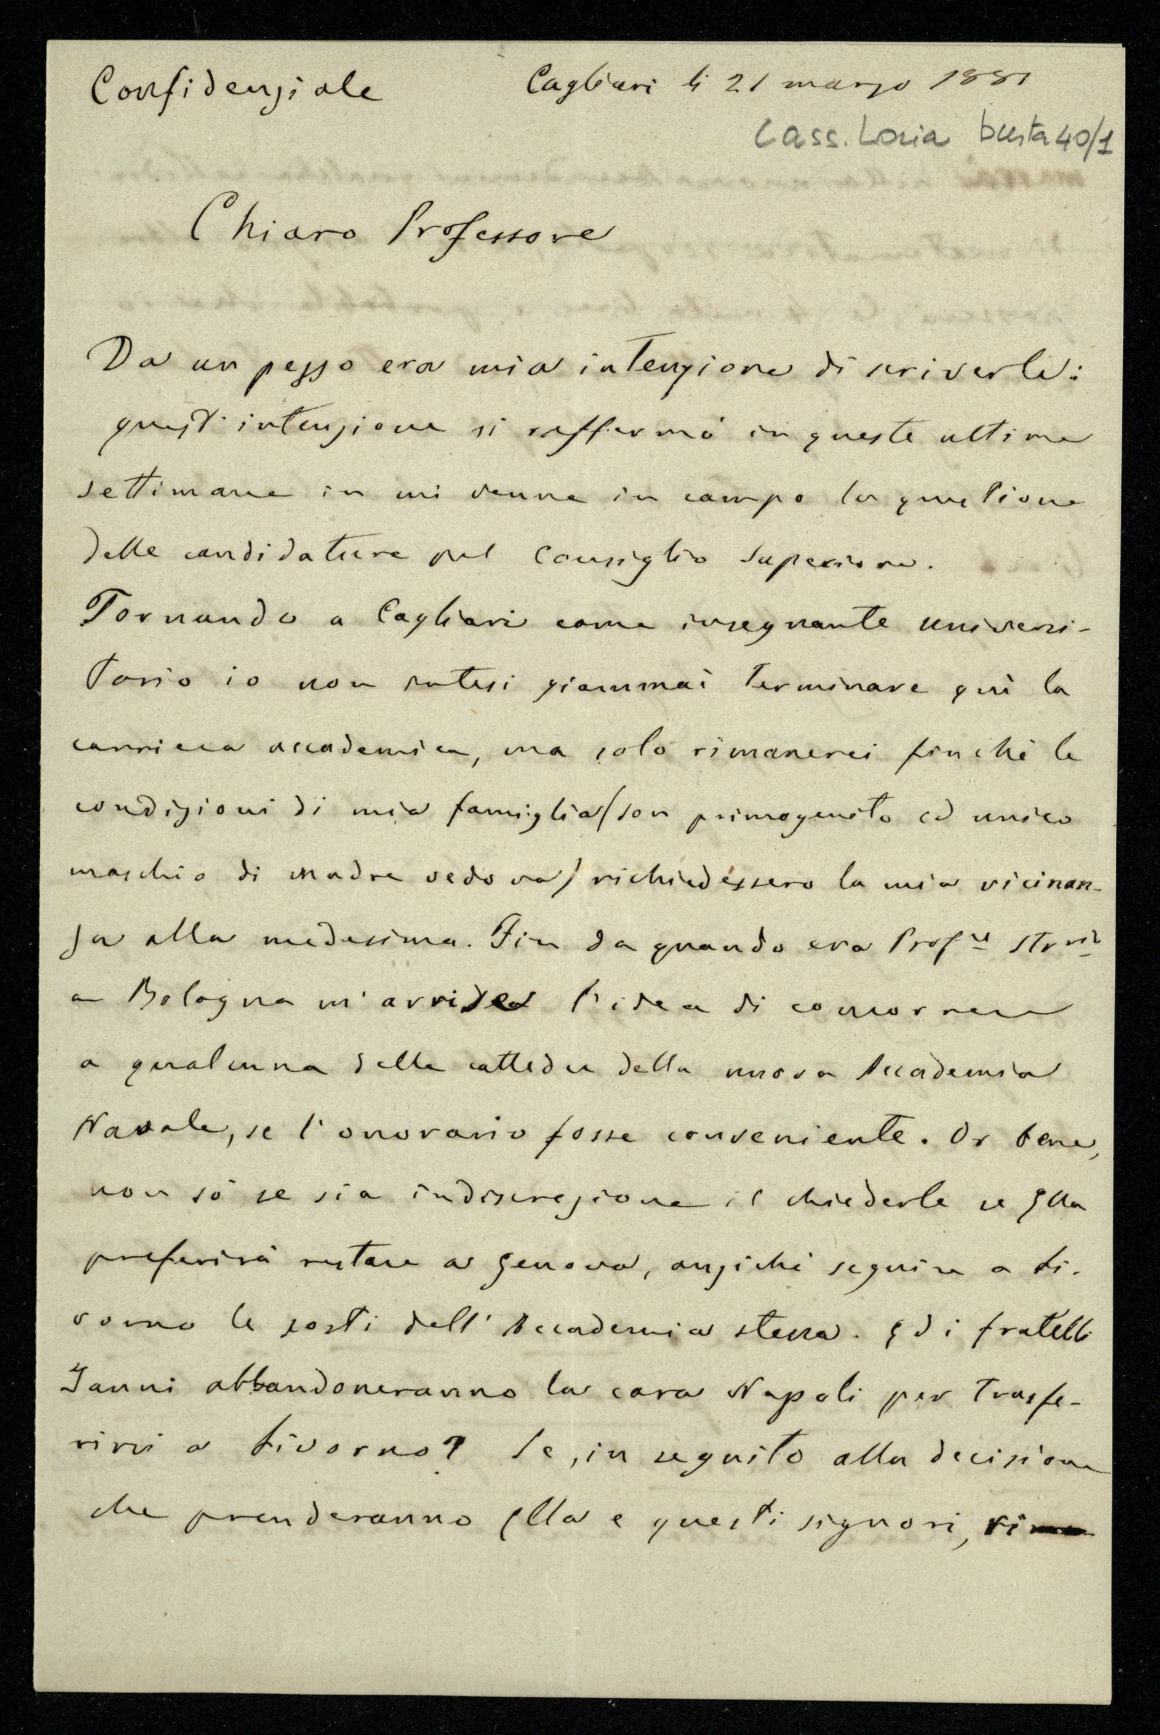 Confidenziale
Cagliari li 21 marzo 1881
Cass. Loria busta 40/1
Chiaro Professore
Da un pezzo era mia intenzione di scriverle:
quest'intenzione si raffermò in queste ultime
settimane in cui venne in campo la questione
delle candidature pel Consiglio Superiore.
Tornando a Cagliari come insegnante universi-
tario io non intesi giammai terminare quì la
carriera accademica, ma solo rimanerci finchè le
condizioni di mia famiglia (son primogenito ed unico
maschio di madre vedova) richiedessero la mia vicinan-
za alla medesima. Fin da quando era Profre strrio
a Bologna m'arrise l'idea di concorrere
a qualcuna delle cattedre della nuova Accademia
Navale, se l'onorario fosse conveniente. Or bene,
non sò se sia indiscrezione il chiederle se Ella
preferirà restare a Genova, anzichè seguire a Li-
vorno le sorti dell'Accademia stessa. Ed i fratelli
Janni abbandoneranno la cara Napoli per trasfe-
rirsi a Livorno? Se, in seguito alla decisione
che prenderanno Ella e questi signori,